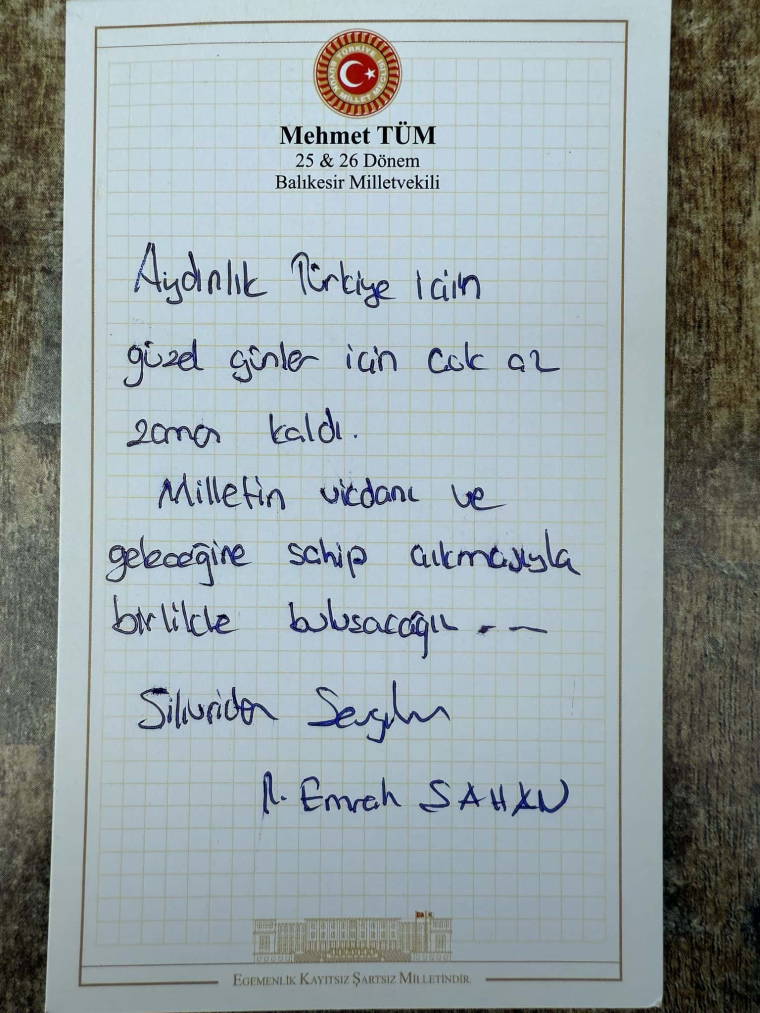 TÜRKİYE BÜYÜK MİLLET MECLİSİ
Mehmet TÜM
25 & 26 Dönem
Balıkesir Milletvekili
Aydınlık Türkiye için
güzel günler için çok az
zaman kaldı.
Milletin vicdanı ve
geleceğine sahip çıkmasıyla
birlikte buluşacağız . —
Silivriden Sevgiler
R. Emrah ŞAHAN
EGEMENLİK KAYITSIZ ŞARTSIZ MİLLETİNDİR.